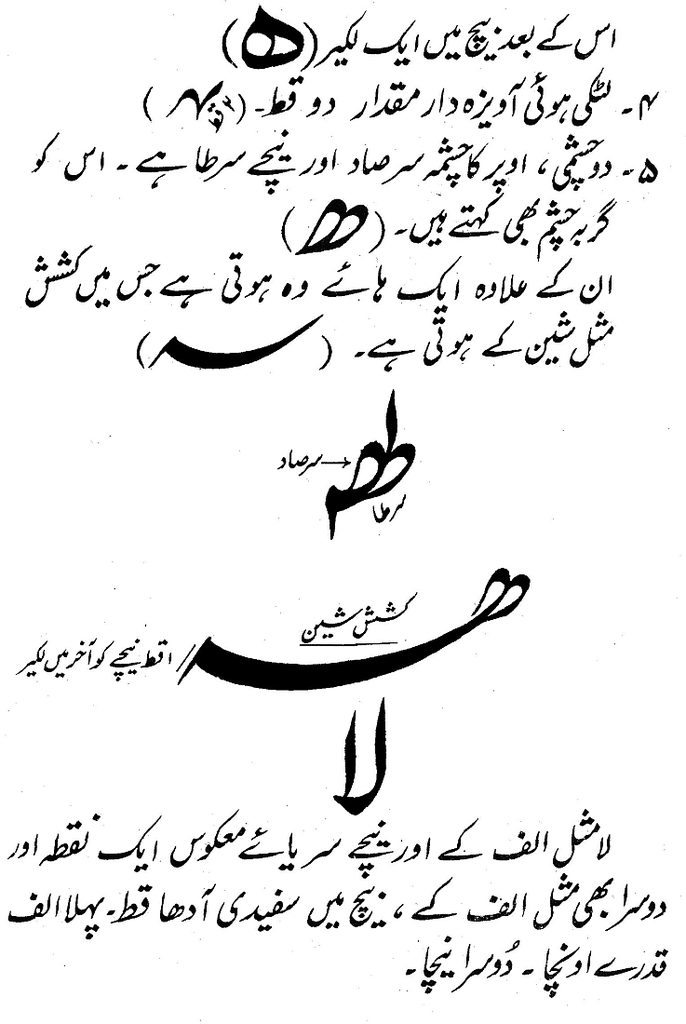 اس کے بعد بیچ میں ایک لکیر (ھ)
۴۔ لٹکی ہوئی آویزہ دار مقدار دو قط۔ (ہہ ۲ قط)
۵۔ دو چشمی، اوپر کا چشمہ سر صاد اور نیچے سر طا ہے۔ اس کو
گربہ چشم بھی کہتے ہیں۔ (ھ)
ان کے علاوہ ایک ہائے وہ ہوتی ہے جس میں کشش
مثل شین کے ہوتی ہے۔ (سہ)
سر صاد
سر طا
کشش شین
۱ قط نیچے کو آخر میں لکیر
لا
لا مثل الف کے اور نیچے سر یائے معکوس ایک نقطہ اور
دوسرا بھی مثل الف کے، بیچ میں سفیدی آدھا قط۔ پہلا الف
قدرے اونچا۔ دُوسرا نیچا۔